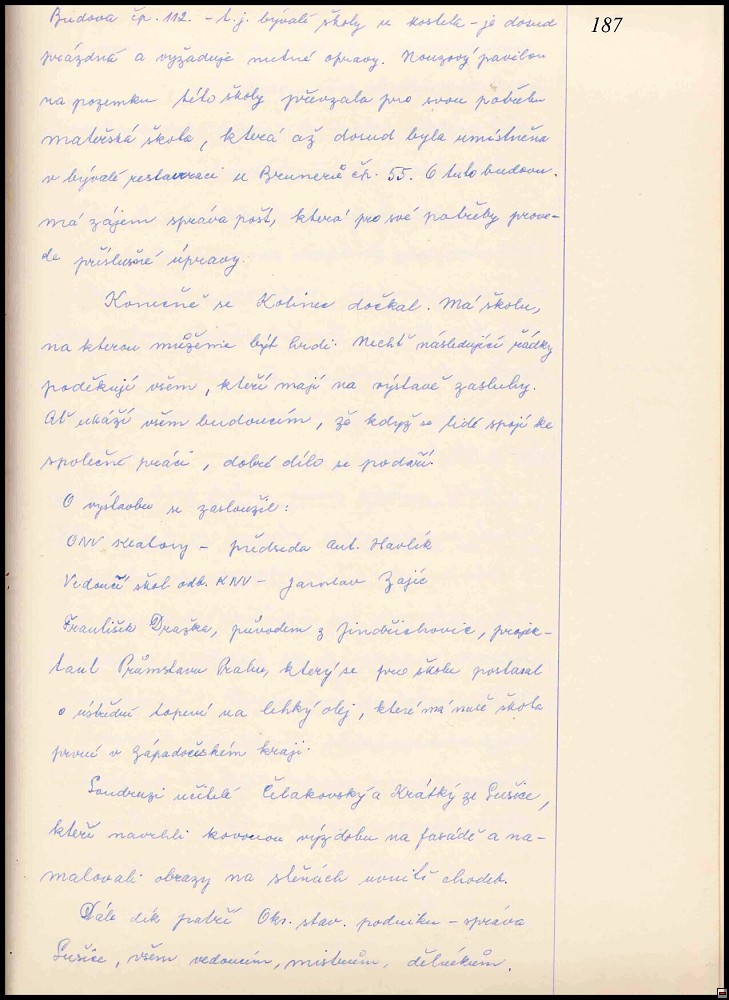 187
Budova čp. 112. - t.j. bývalé školy u kostela - je dosud
prázdná a vyžaduje nutné opravy. Nouzový pavilon
na pozemku této školy převzala pro svou potřebu
mateřská škola, která až dosud byla umístněna
v bývalé restauraci u Brunerů čp. 55. O tuto budovu
má zájem správa pošt, která pro své potřeby prove-
de příslušné úpravy.
Konečně se Kolinec dočkal. Má školu,
na kterou můžeme být hrdi. Nechť následující řádky
poděkují všem, kteří mají na výstavě zásluhy.
Ať ukáží všem budoucím, že když se lidé spojí ke
společné práci, dobré dílo se podaří.
O výstavbu se zasloužil:
ONV Klatovy - předseda Ant. Havlík
Vedoucí škol. odb. KNV - Jaroslav Zajíc
František Draška, původem z Jindřichovic, projek-
tant Průmstavu Praha, který se pro školu postaral
o ústřední topení na lehký olej, které má naše škola
první v Západočeském kraji.
Soudruzi učitelé Čelakovský a Krátký ze Sušice,
kteří navrhli kovovou výzdobu na fasádě a na-
malovali obrazy na stěnách uvnitř chodeb.
Dále dík patří Okr. stav. podniku - správa
Sušice, všem vedoucím, mistrům, dělníkům.